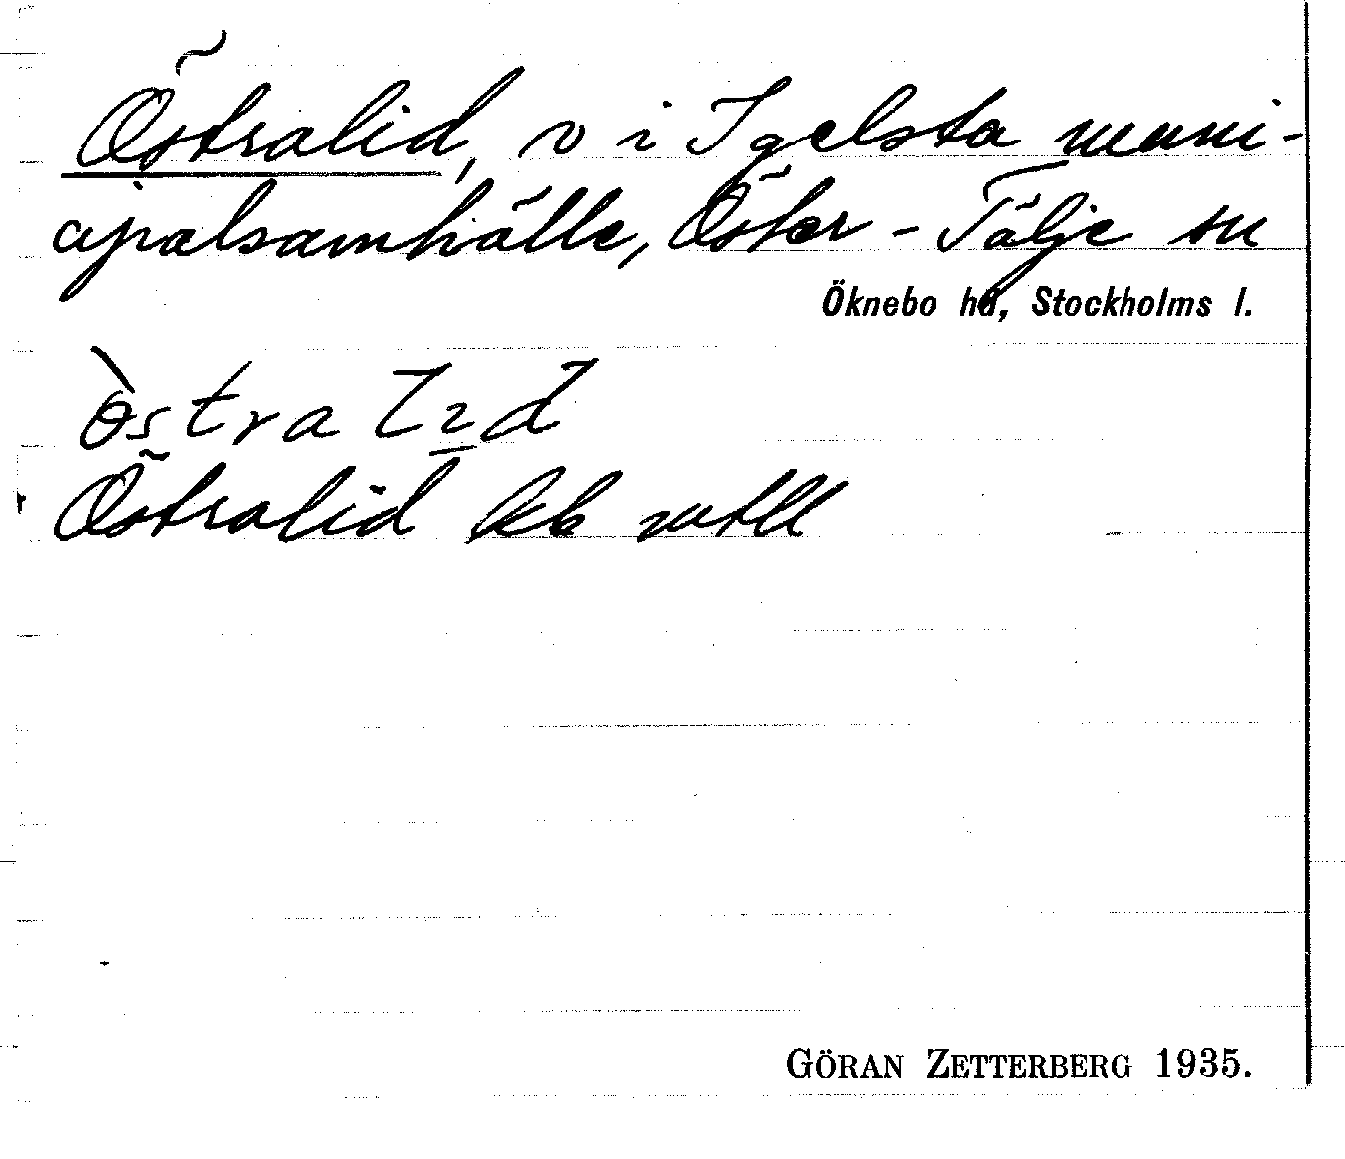 Östralid, v i Igelsta muni-
cipalsamhälle, Öster-Tälje sn
Öknebo hd, Stockholms l.
Östralid kb
GÖRAN ZETTERBERG 1935.